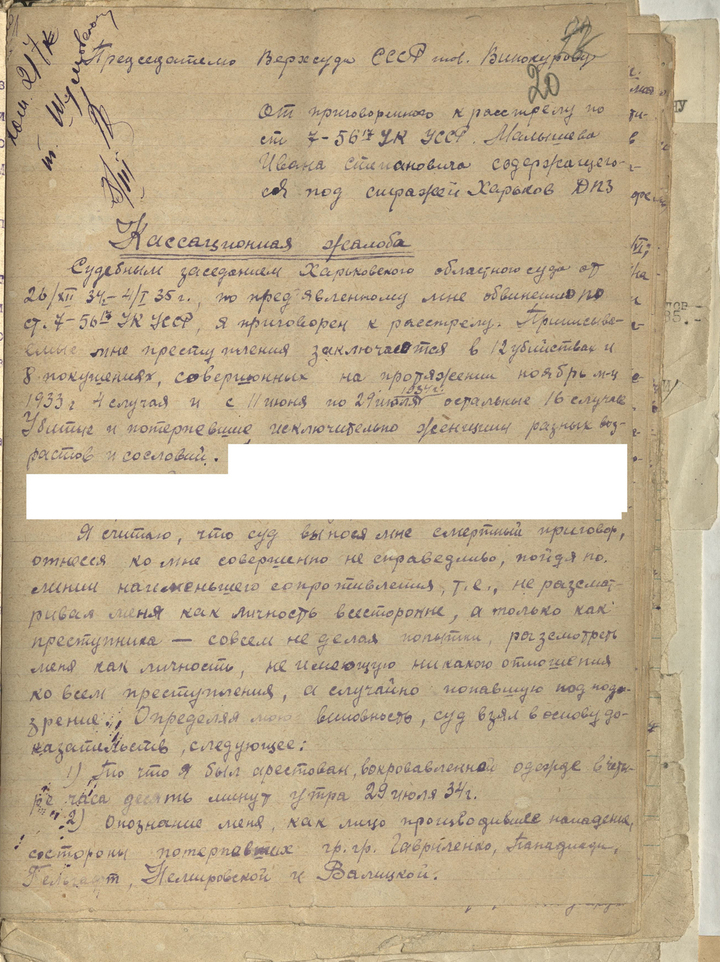 ком. 217к
т. Шумович
Председателю Верхсуда СССР тов. Винокурову
20
От приговоренного к расстрелу по
ст 7-56¹⁷ УК УССР. Малышева
Ивана Степановича содержащего-
ся под стражей Харьков ДПЗ
Кассационная жалоба
Судебным заседанием Харьковского областного суда от
26/XII 34г – 4/I 35 г., по предъявленному мне обвинению по
ст. 7-56¹⁷ УК УССР, я приговорен к расстрелу. Приписывае-
емые мне преступления заключается в 12 убийствах и
8 покушениях, совершонных на протяжении ноябрь м-ц
1933 г 4 случая и с 11 июня по 29 июля 1934 г. остальные 16 случаев
Убитые и потерпевшие исключительно женщины разных воз-
растов и сословий.
Я считаю, что суд вынося мне смертный приговор,
отнесся ко мне совершенно не справедливо, пойдя по
линии наименьшего сопротивления, т.е., не разсмат-
ривая меня как личность всесторонне, а только как
преступника — совсем не делая попытки, разсмотреть
меня как личность, не имеющую никакого отношения
ко всем преступления, а случайно попавшую под подо-
зрение. Определяя мою виновность, суд взял в основу до-
казательств, следующее:
1) То что я был арестован, вокровавленной одежде в четы-
ре часа десять минут утра 29 июля 34г.
2) Опознание меня, как лицо производившее нападение,
состороны потерпевших гр. гр. Гавриленко,
Немировской и Валицкой.